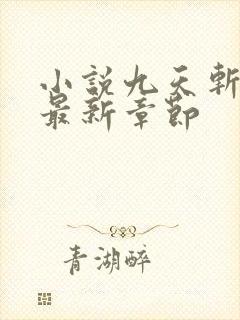 小説九天斬
最新章節
青湖醉